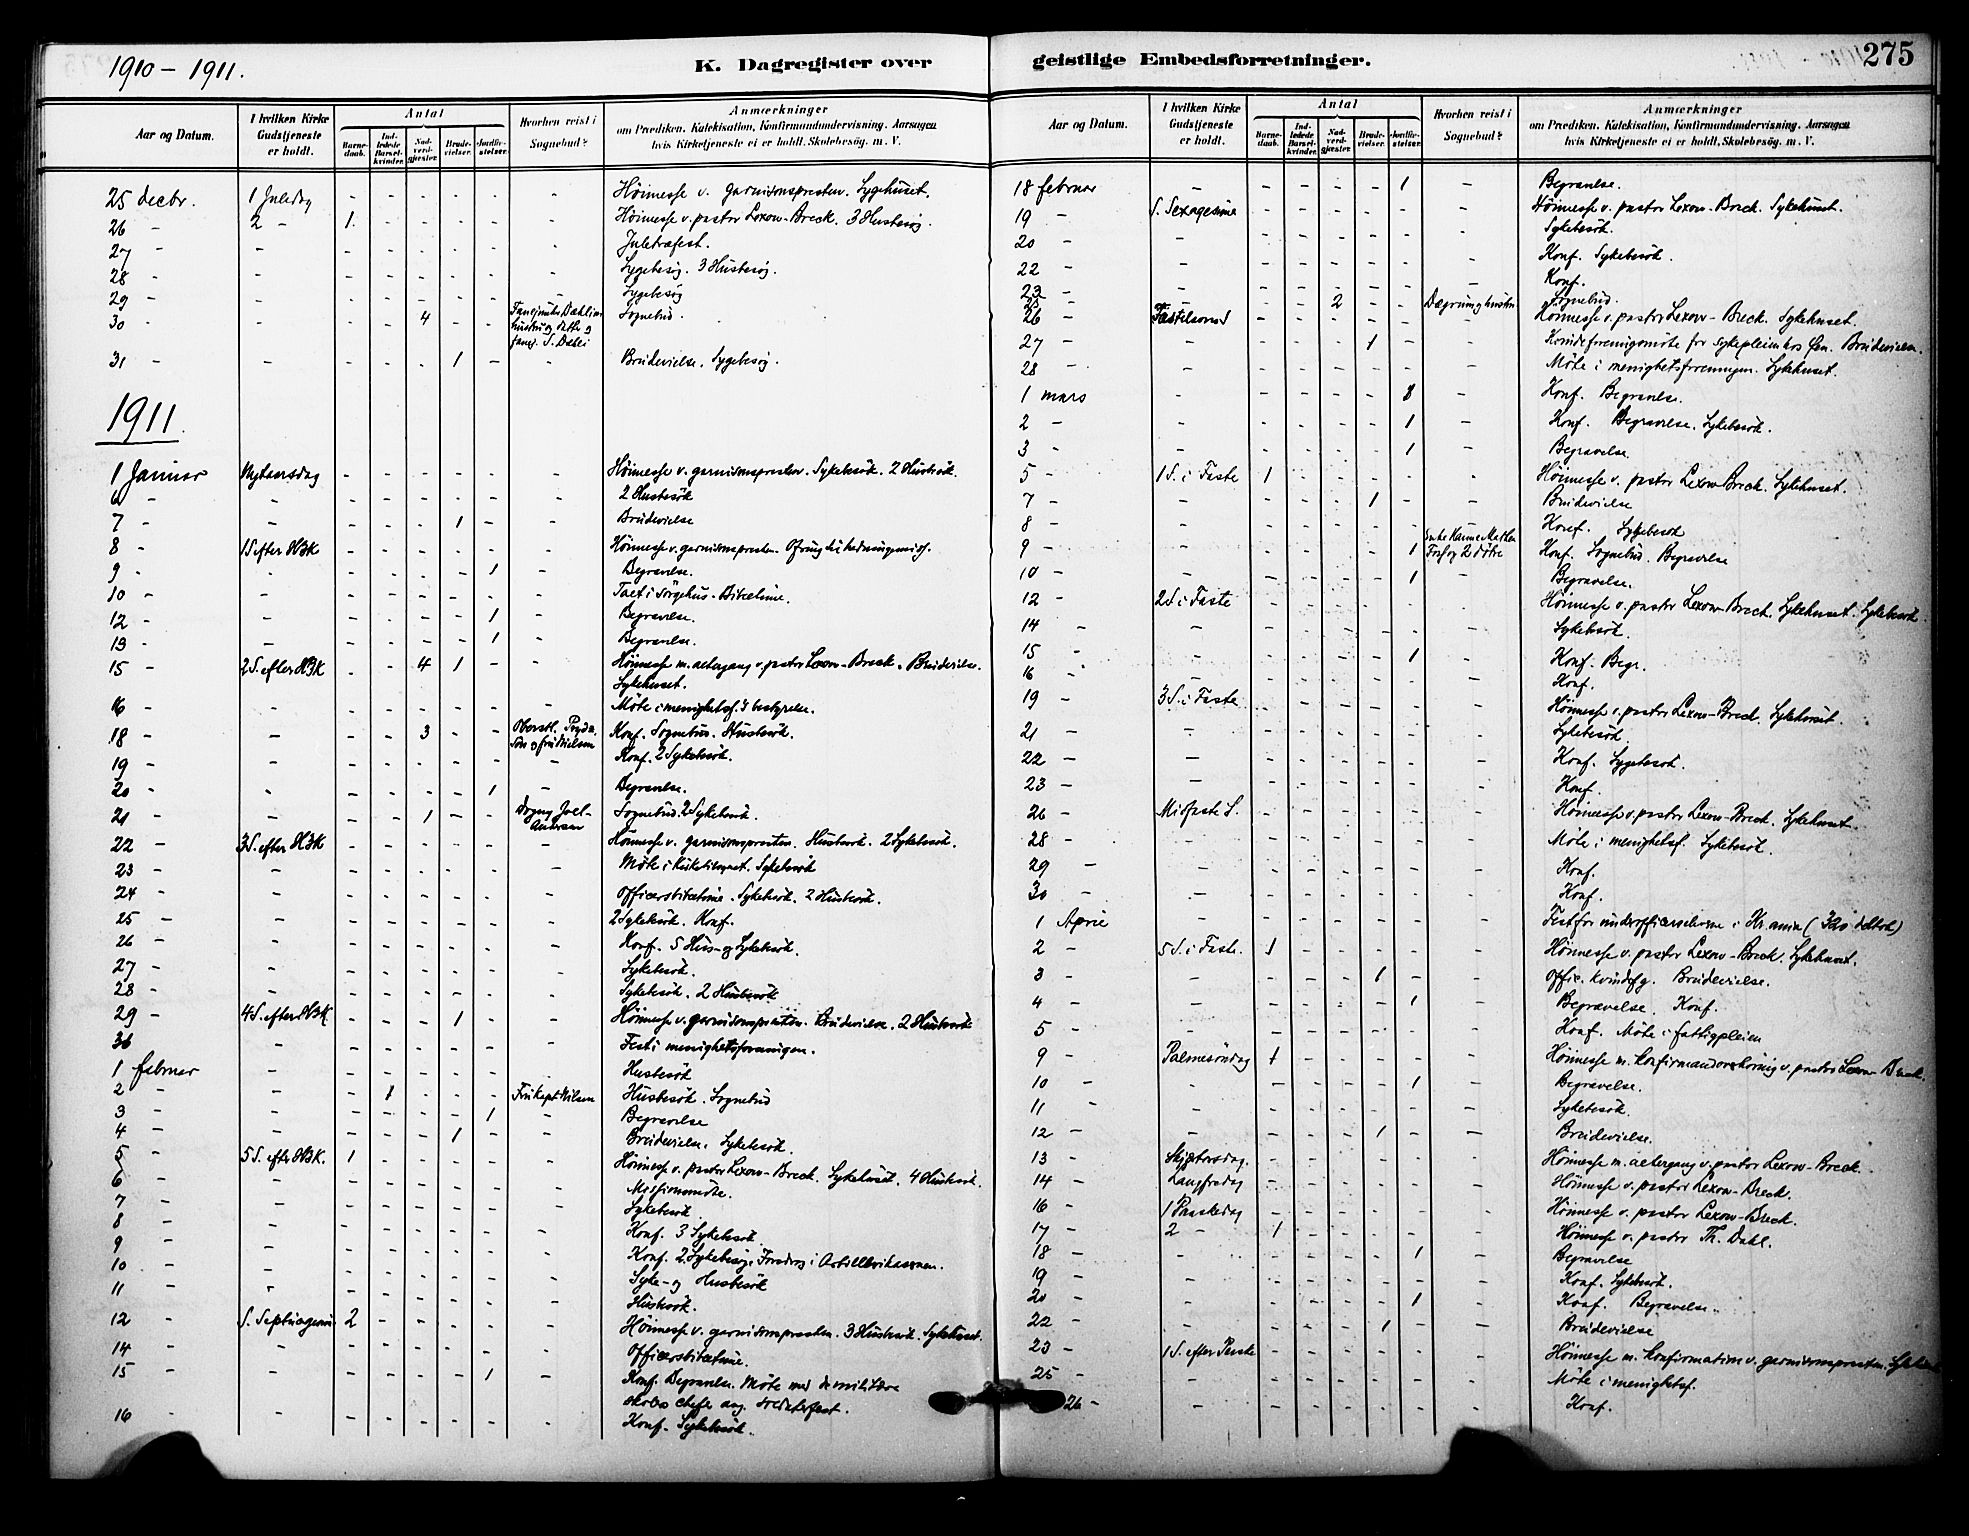 1910 – 1911.
K. Dagregister over
Aar og Datum.
I hvilken Kirke Gudstjeneste er holdt.
Antal
Barnedaab.
Indledede Barselkvinder.
Nadverdgjester.
Brudevielser.
Jordfæstelser.
Hvorhen reist i Sognebud?
Anmærkninger
om Prædiken, Katekisation, Konfirmandundervisning, Aarsagen
hvis Kirketjeneste ei er holdt, Skolebesøg m. V.
25 decbr. 1 Juledag - - - - - - Höimesse v. garnisonspresten. Sygehuset.
26 - 2 - 1. - - - - - Höimesse v. pastor Lexow-Breck. 3 Husbesög.
27 - - - - - - - - Juletræfest.
28 - - - - - - - - Sygebesøg. 3 Husbesøj.
29 - - - - - - - - Sygebesög
30 - - - - 4 - - Sognebud.
hustru og datter og
31 - - - - - 1 - - Brudevielse. Sygebesög.
1911.
1 Januar Nytaarsdag - - - - - - Höimesse v. garnisonspresten. Sykebesök. 2 Husbesök.
6 - - - - - - - - 2 Husbesök
7 - - - - - 1 - - Brudevielse
8 - 1 S. efter H3K - - - - - - Höimesse v. garnisonspresten.
9 - - - - - - 1 - Begravelse.
10 - - - - - - - - Bibeltime.
12 - - - - - - 1 - Begravelse.
13 - - - - - - 1 - Begravelse.
15 - 2 S. efter H3K - - 4 1 - - Höimesse m. altergang v. pastor Lexow-Breck. Brudevielse.
Sykehuset.
16 - - - - - - - - Möte i menighetsf.s bestyrelse.
18 - - - - 3 - - Oberstl. Konf. Sognebud. Husbesök.
Nielsen
19 - - - - - - - - Konf. 2 Sykebesök.
20 - - - - - - 1 - Begravelse.
21 - - - - 1 - - Joel- Sognebud. 2 Sykebesök.
Andersen
22 - 3 S. efter H3K - - - - - - Höimesse v. garnisonspresten. Husbesök. 2 Sykebesök.
23 - - - - - - - - Möte i Sykebesök
24 - - - - - - - - Officersbibeltime. Sykebesök. 2 Husbesök.
25 - - - - - - - - 2 Sykebesök. Konf.
26 - - - - - - - - Konf. 5 Hus- og Sykebesök.
27 - - - - - - - - Sykebesök.
28 - - - - - - - - Sykebesök. 2 Husbesök
29 - 4 S. efter H3K - - - 1 - - Höimesse v. garnisonspresten. Brudevielse. 2 Husbesök
30 - - - - - - - - Fest i menighetsforeningen.
1 februar - - - - - - - Husbesök
2 - - - 1 - - - Fru kapt. Nilsen Husbesök. Sognebud
3 - - - - - - 1 - Begravelse
4 - - - - - 1 - - Brudevielse. Sykebesök.
5 - 5 S. efter H3K. 1 - - - - - Höimesse v. pastor Lexow-Breck. Sykehuset. 4 Husbesök.
6 - - - - - - - - Missionsmöte.
7 - - - - - - - - Sykebesök
8 - - - - - - - - Konf. 3 Sykebesök
9 - - - - - - - - Konf. 2 Sykebesög. Foredrag i Artillerikasernen.
10 - - - - - - - - Syke- og Husbesök
11 - - - - - - - - Husbesök.
12 - S. Septuagesim. 2 - - - - - Höimesse v. garnisonspresten. 3 Husbesök. Sykehuset.
14 - - - - - - - - Officersbibeltime.
15 - - - - - - 1 - Konf. Begravelse. Möte med de militære
skolers chefer ang. soldaterfest.
16 - - - - - - - - Konf. Sykebesök.
geistlige Embedsforretninger.
275
Aar og Datum.
I hvilken Kirke Gudstjeneste er holdt.
Antal
Barnedaab.
Indledede Barselkvinder.
Nadverdgjester.
Brudevielser.
Jordfæstelser.
Hvorhen reist i Sognebud?
Anmærkninger
om Prædiken, Katekisation, Konfirmandundervisning, Aarsagen
hvis Kirketjeneste ei er holdt, Skolebesög m. V.
18 februar - - - - - 1 - Begravelse.
19 - S. Sexagesima - - - - - - Höimesse v. pastor Lexow-Breck. Sykehuset.
20 - - - - - - - - Sykebesök.
22 - - - - - - - - Konf. Sykebesök.
23 - - - - - - - - Konf.
25 - - - - 2 - - Sognebud.
26 - Fastelavnss - - - - - - Höimesse v. pastor Lexow-Breck. Sykehuset.
27 - - - - - 1 - - Brudevielse.
28 - - - - - - - - Möte i menighetsforeningen. Sykehuset.
1 mars - - - - - - Konf. Begravelse.
2 - - - - - - 1 - Konf. Begravelse. Sykebesök.
3 - - - - - - 1 - Begravelse
5 - 1 S. i Faste 1 - - - - - Höimesse v. pastor Lexow-Breck. Sykehuset.
7 - - - - - 1 - - Brudevielse
8 - - - - - - - - Konf. Sykebesök
9 - - - - - - 1 og 2 døtre Konf. Sognebud. Begravelse
10 - - - - - - 1 - Begravelse.
12 - 2 S. i Faste - - - - - - Höimesse v. pastor Lexow-Breck. Sykehuset. Sykebesök.
14 - - - - - - - - Sykebesök.
15 - - - - - - 1 - Konf. Begr.
16 - - - - - - - - Konf.
19 - 3 S. i Faste - - - - - - Höimesse v. pastor Lexow-Breck. Sykehuset.
21 - - - - - - - - Sykebesök
22 - - - - - - - - Konf. Sygebesök.
23 - - - - - - - - Konf.
26 - Midfaste S. - - - - - - Höimesse v. pastor Lexow-Breck. Sykehuset.
28 - - - - - - - - Möte i menighetsf. Sykebesök.
29 - - - - - - - - Konf.
30 - - - - - - - - Konf.
1 April - - - - - - - Fest for underofficerselever i (320 deltok)
2 - 5 S. i Faste. 1 - - - - - Höimesse v. pastor Lexow-Breck. Sykehuset.
3 - - - - - 1 - - Offic. kvindefg. Brudevielse.
4 - - - - - - 1 - Begravelse. Konf.
5 - - - - - - - - Konf. Möte i fattigpleien
9 - Palmesöndag 1 - - - - - Höimesse m. konfirmandoverhöring v. pastor Lexow-Breck.
10 - - - - - - 1 - Begravelse.
11 - - - - - - - - Sykebesök.
12 - - - - - 1 - - Brudevielse.
13 - Skjærtorsdag. - - - - - - Höimesse m. altergang v. pastor Lexow-Breck.
14 - Langfredag - - - - - - Höimesse v. pastor Lexow-Breck.
16 - 1 Paaskedag - - - - - - Höimesse v. pastor Lexow-Breck.
17 - 2 - 1 - - - - - Höimesse v. pastor Th. Dahl.
18 - - - - - - 1 - Begravelse
19 - - - - - - - - Konf. Sykebesök.
20 - - - - - - 1 - Konf. Begravelse.
22 - - - - - 1 - - Brudevielse
23 - 1 S. efter Paaske - - - - - - Höimesse m. konfirmation v. garnisonspresten.
25 - - - - - - - - Möte i menighetsf.
26 - - - - - - - - Konf.